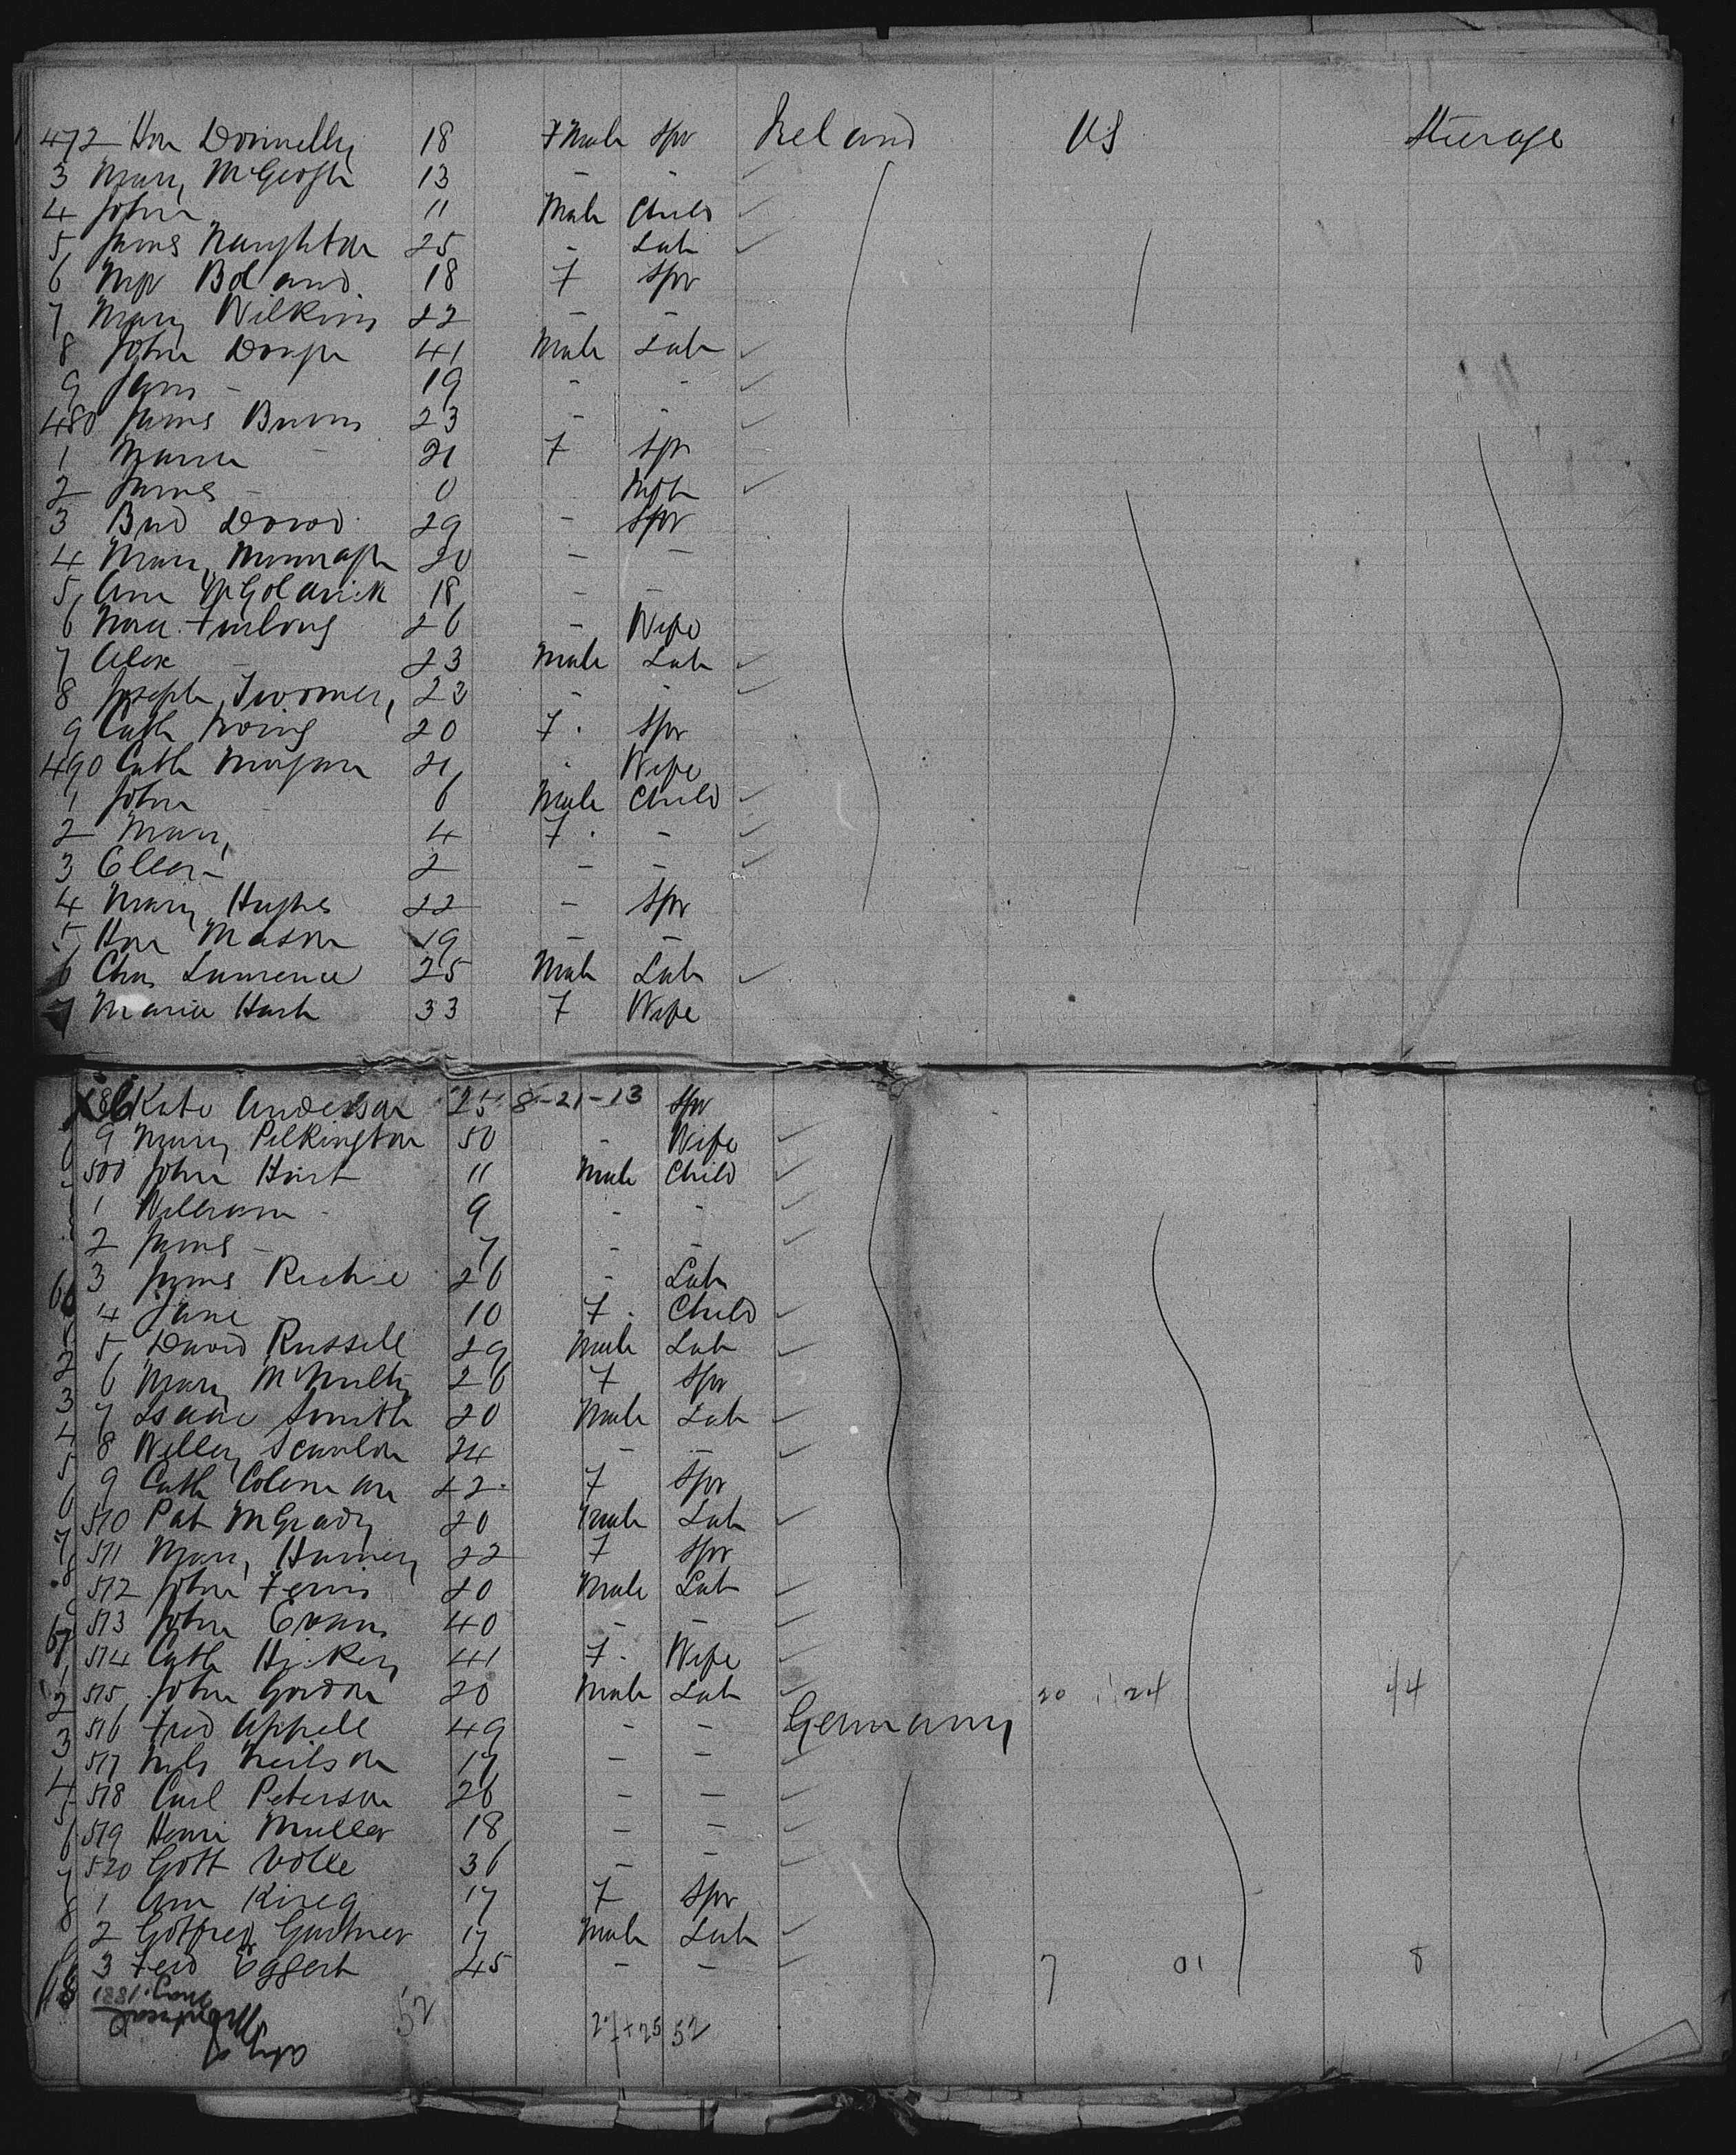 472 Hon Donnelly 18 Fmale Spr Ireland US Steerage
3 Mary McGeogh 13 - -
4 John 11 Male Child
5 James Naughton 25 - Lab
6 Mgr Boland 18 F Spr
7 Mary Wilkins 22 - -
8 John 41 Male Lab
9 James - 19 - -
480 James Burns 23 - -
1 Maria - 21 F Spr
2 James - 0 Infn
3 Brid Dowd 29 - Spr
4 Mary 20 - -
5 Ann McGolarick 18 - -
6 Nora Furlong 26 - Wife
7 Alex - 23 Male Lab
8 Joseph Twomey 22 - -
9 Cath 20 F Spr
490 Cath 21 Wife
1 John - 6 Male Child
2 Mary 4 F -
3 Ellen - 2 - -
4 Mary Hughes 22 - Spr
5 Hon Mason 19 - -
6 Chas Lawrence 25 Male Lab
7 Maria Hart 33 F Wife
8 Kate Anderson 25 8-21-13 Spr
9 Mary Pilkington 50 - Wife
500 John Hart 11 Male Child
1 William - 9 - -
2 James - 7 - -
3 James Richie 26 - Lab
4 Jane 10 F Child
5 David Russell 29 Male Lab
6 Mary McNulty 26 F Spr
7 Isaac Smith 20 Male Lab
8 Willey Scanlon 24 - -
9 Cath Coleman 22 F Spr
510 Pat McGrady 20 Male Lab
511 Mary 22 F Spr
512 John Ferris 20 Male Lab
513 John Evans 40 - -
514 Cath Hickey 41 F Wife
515 John Gordon 20 Male Lab 20 24 44
516 Fred Appell 49 - - Germany
517 Nils Neilson 17 - -
518 Carl Peterson 26 - -
519 Henri Muller 18 - -
520 Gott Volle 36 - -
1 Ann Kireg 17 F Spr
2 Gottfred Gardner 17 Male Lab
3 Ferd Eggert 45 - - 7 01 8
May 1881
52 27+25 52
Ship